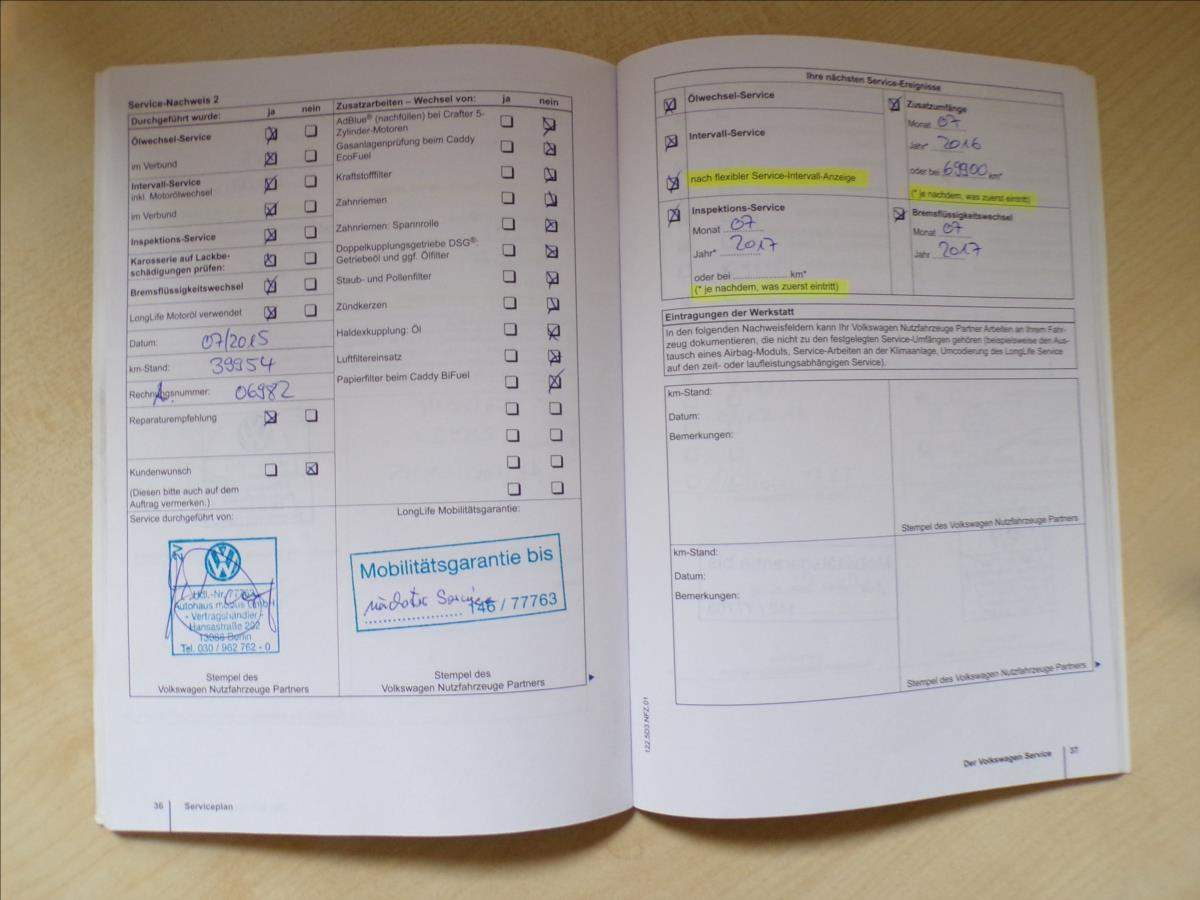 Service-Nachweis 2
Durchgeführt wurde: ja nein
Ölwechsel-Service
im Verbund
Intervall-Service
inkl. Motorölwechsel
im Verbund
Inspektions-Service
Karosserie auf Lackbe-
schädigungen prüfen:
Bremsflüssigkeitswechsel
LongLife Motoröl verwendet
Datum: 07/2015
km-Stand: 39954
Rechnungsnummer: 06982
Reparaturempfehlung
Kundenwunsch
(Diesen bitte auch auf dem
Auftrag vermerken.)
Service durchgeführt von:
2V
Autohaus GmbH
- Vertragshändler -
Hansastraße 202
Berlin
Tel. 030 / 962 762 - 0
Stempel des
Volkswagen Nutzfahrzeuge Partners
Zusatzarbeiten – Wechsel von: ja nein
AdBlue® (nachfüllen) bei Crafter 5-
Zylinder-Motoren
Gasanlagenprüfung beim Caddy
EcoFuel
Kraftstofffilter
Zahnriemen
Zahnriemen: Spannrolle
Doppelkupplungsgetriebe DSG®:
Getriebeöl und ggf. Ölfilter
Staub- und Pollenfilter
Zündkerzen
Haldexkupplung: Öl
Luftfiltereinsatz
Papierfilter beim Caddy BiFuel
LongLife Mobilitätsgarantie:
Mobilitätsgarantie bis
nächster Service
146 / 77763
Stempel des
Volkswagen Nutzfahrzeuge Partners
36 Serviceplan
Ihre nächsten Service-Ereignisse
Ölwechsel-Service
Intervall-Service
nach flexibler Service-Intervall-Anzeige
Zusatzumfänge
Monat 07
Jahr* 2016
oder bei 69900 km*
(* je nachdem, was zuerst eintritt)
Inspektions-Service
Monat 07
Jahr* 2017
oder bei km*
(* je nachdem, was zuerst eintritt)
Bremsflüssigkeitswechsel
Monat 07
Jahr 2017
Eintragungen der Werkstatt
In den folgenden Nachweisfeldern kann Ihr Volkswagen Nutzfahrzeuge Partner Arbeiten an Ihrem Fahr-
zeug dokumentieren, die nicht zu den festgelegten Service-Umfängen gehören (beispielsweise den Aus-
tausch eines Airbag-Moduls, Service-Arbeiten an der Klimaanlage, Umcodierung des LongLife Service
auf den zeit- oder laufleistungsabhängigen Service).
km-Stand:
Datum:
Bemerkungen:
Stempel des Volkswagen Nutzfahrzeuge Partners
km-Stand:
Datum:
Bemerkungen:
Stempel des Volkswagen Nutzfahrzeuge Partners
122.5D3.NFZ.01
Der Volkswagen Service 37